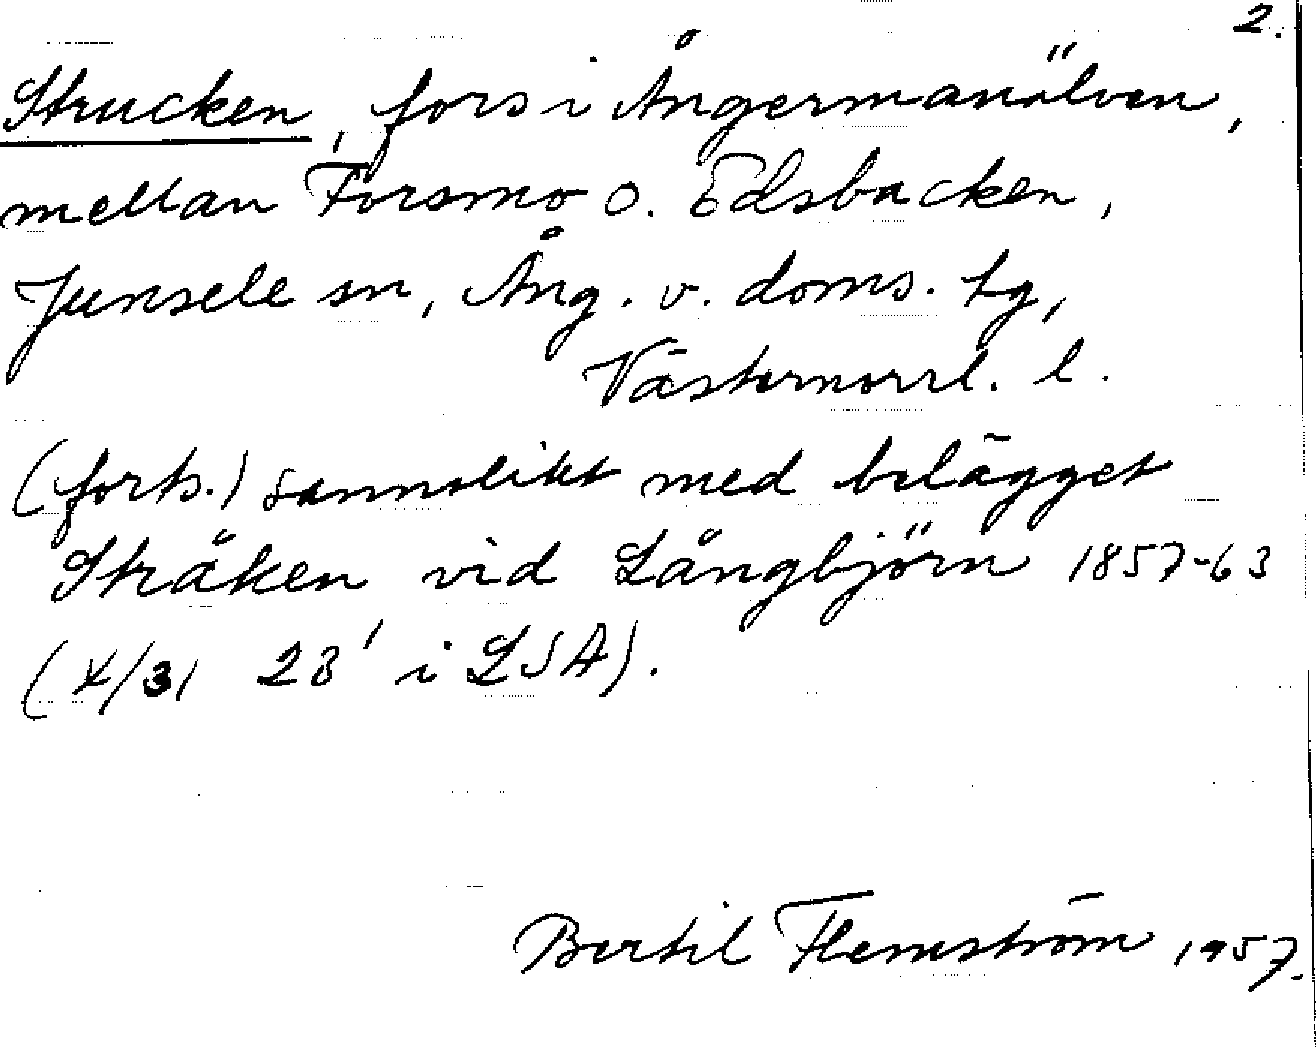 2.
Strucken, fors i Ångermanälven,
mellan Forsmo o. Edsbacken,
Junsele sn, Ång. v. doms. tg,
Västernorrl. l.
(forts.) sannolikt med belägget
Stråken vid Långbjörn 1857-63
(X/31 23' i LSA).
Bertil Flemström 1957.